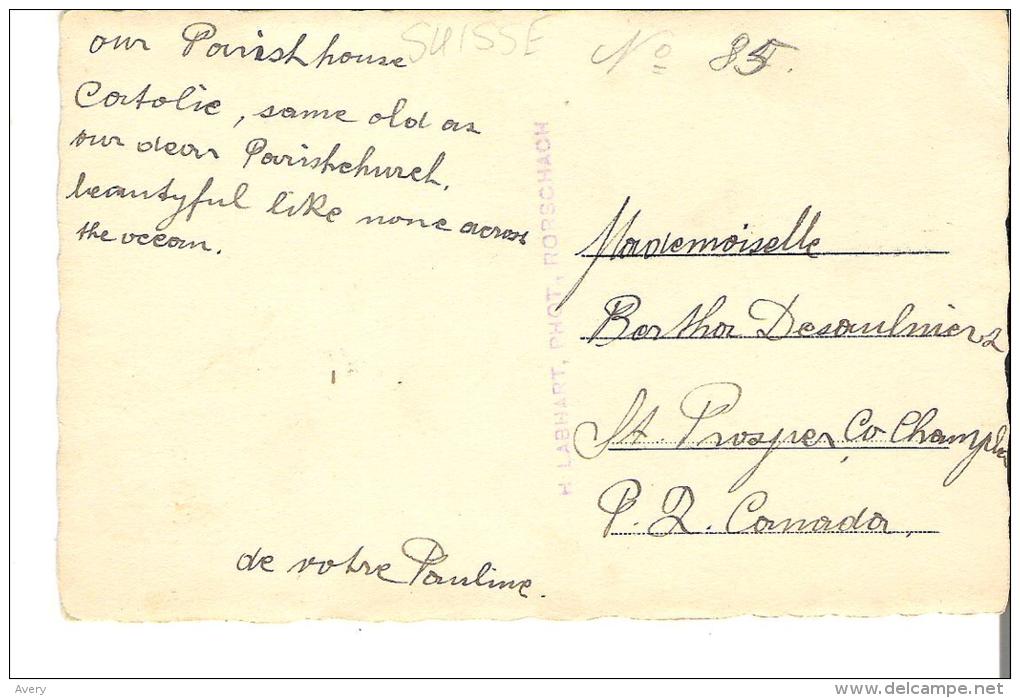 SUISSE
No 85.
our Parishhouse
Catolic, same old as
our dear Parishchurch.
beautyful like none across
the ocean.
de votre Pauline.
H. LABHART, PHOT., RORSCHACH
Mademoiselle
Bertha Desaulniers
St. Prosper, Co Champlain
P. Q. Canada,
Avery
delcampe.net